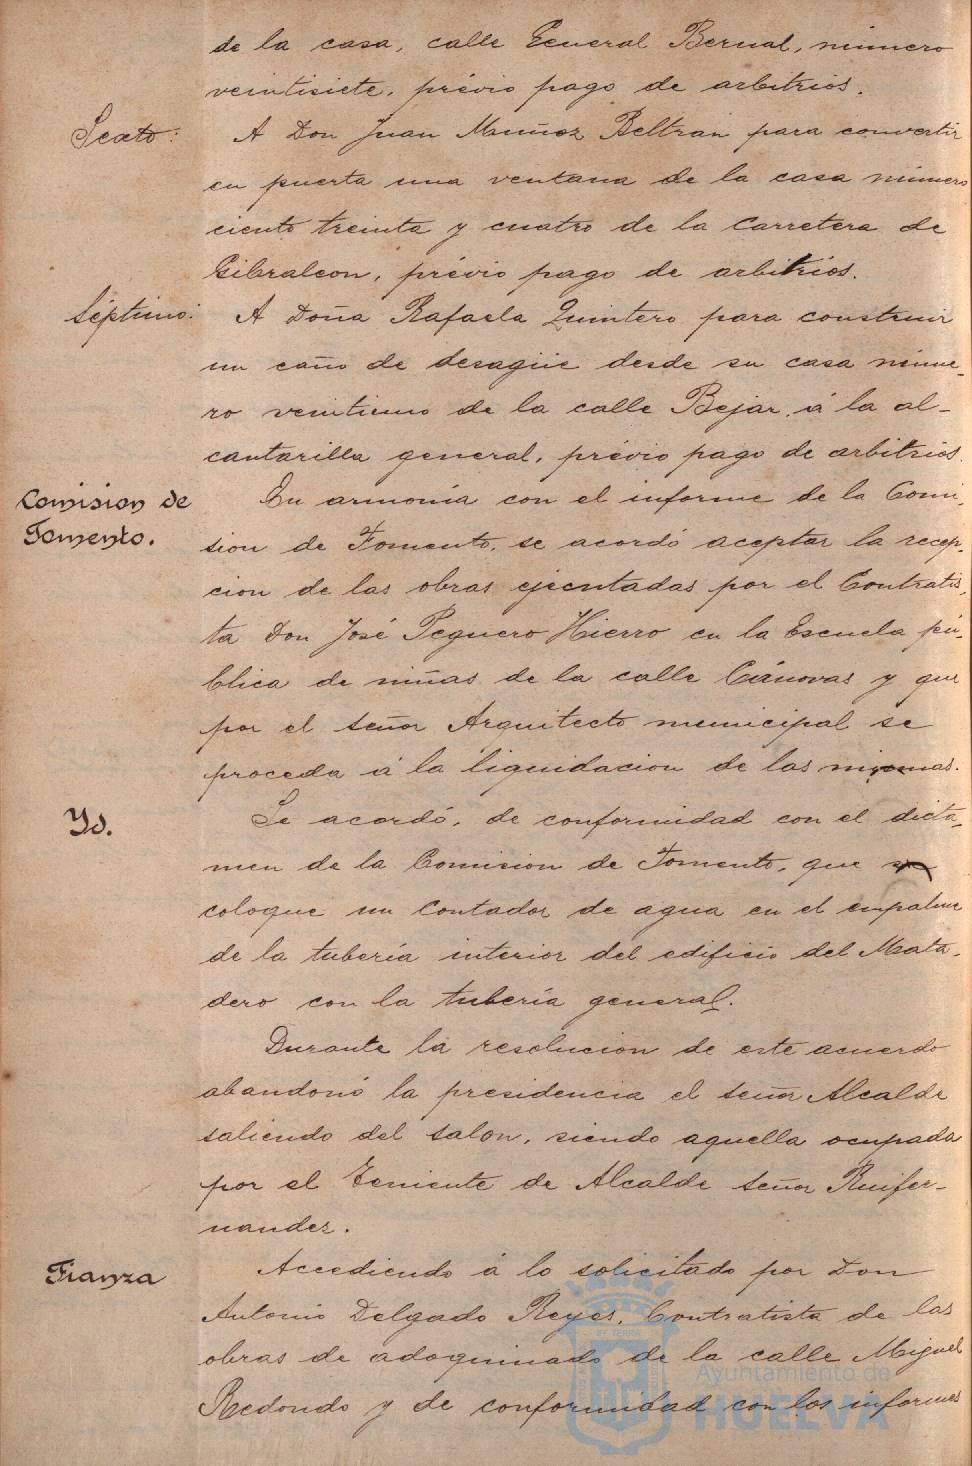 de la casa, calle General Bernal, número
veintisiete, prévio pago de arbitrios.
Sexto:
A Don Juan Muñoz Beltran para convertir
en puerta una ventana de la casa número
ciento treinta y cuatro de la Carretera de
Gibraleon, prévio pago de arbitrios.
Séptimo:
A Doña Rafaela Quintero para construir
un caño de desagüe desde su casa núme-
ro veintiuno de la calle Bejar á la al-
cantarilla general, prévio pago de arbitrios.
Comision de
Fomento.
En armonía con el informe de la Comi-
sion de Fomento, se acordó aceptar la recep-
cion de las obras ejecutadas por el Contratis-
ta Don José Peguero Hierro en la Escuela pú-
blica de niñas de la calle Cánovas y que
por el señor Arquitecto municipal se
proceda á la liquidacion de las mismas.
Yd.
Se acordó, de conformidad con el dictá-
men de la Comision de Fomento, que se
coloque un Contador de agua en el empalme
de la tubería interior del edificio del Mata-
dero con la tubería general.
Durante la resolucion de este acuerdo
abandonó la presidencia el señor Alcalde
saliendo del salon, siendo aquella ocupada
por el Teniente de Alcalde señor Ruifer-
nandez.
Fianza
Accediendo á lo solicitado por Don
Antonio Delgado Reyes, Contratista de las
obras de adoquinado de la calle Miguel
Redondo y de conformidad con los informes
Ayuntamiento de
HUELVA